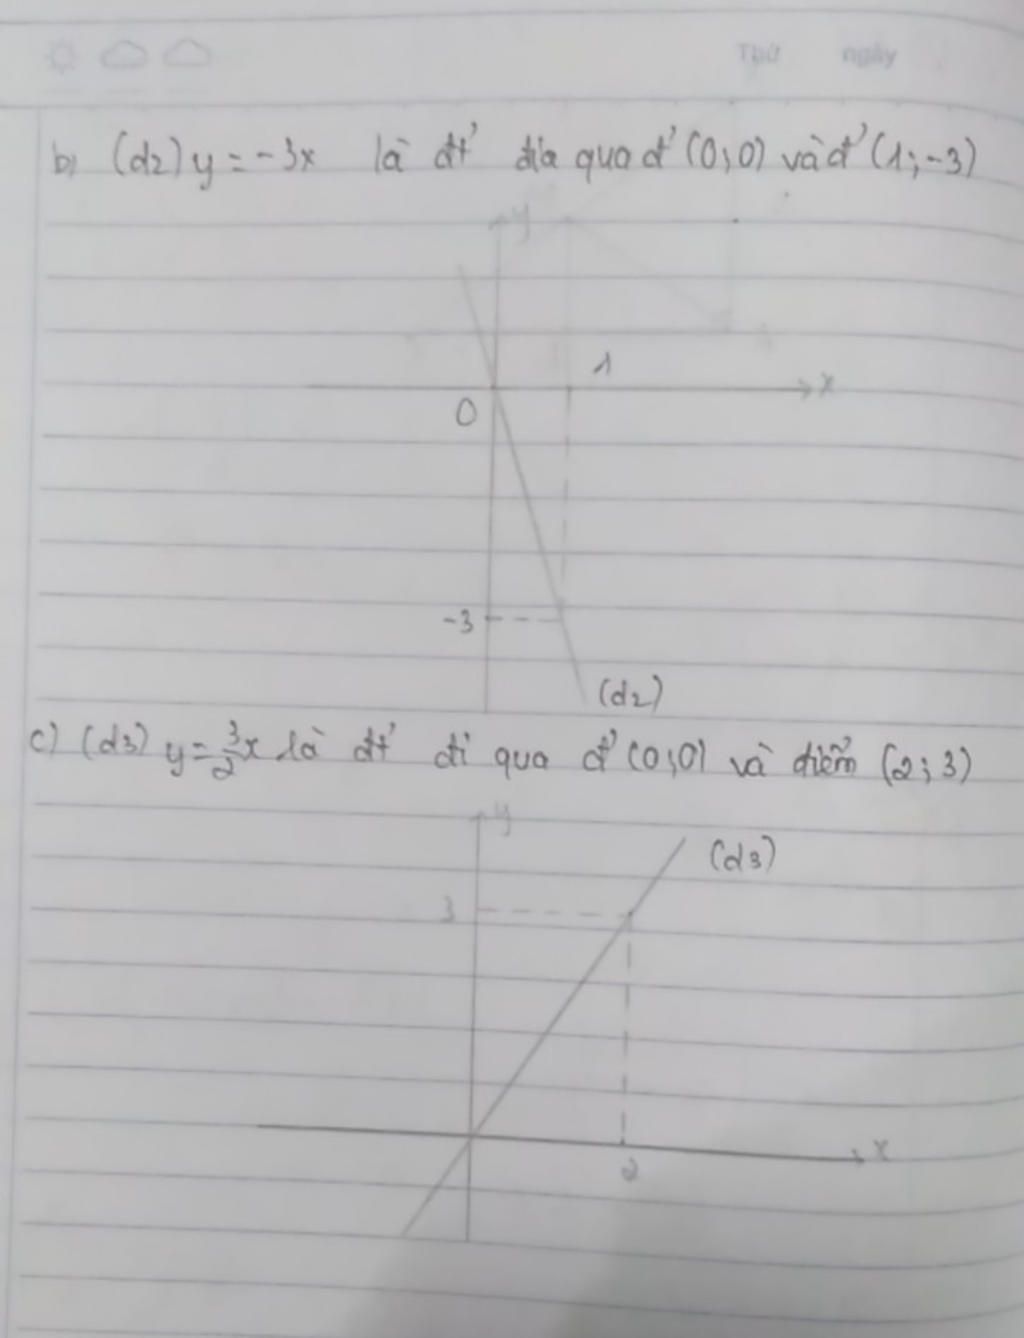 Thứ ngày
b) (d2) y = -3x là đt' đia qua đ' (0;0) và đ' (1;-3)
y
1
x
0
-3
(d2)
c) (d3) y = 3/2 x là đt' đi qua đ' (0;0) và điểm (2;3)
y
(d3)
3
x
2